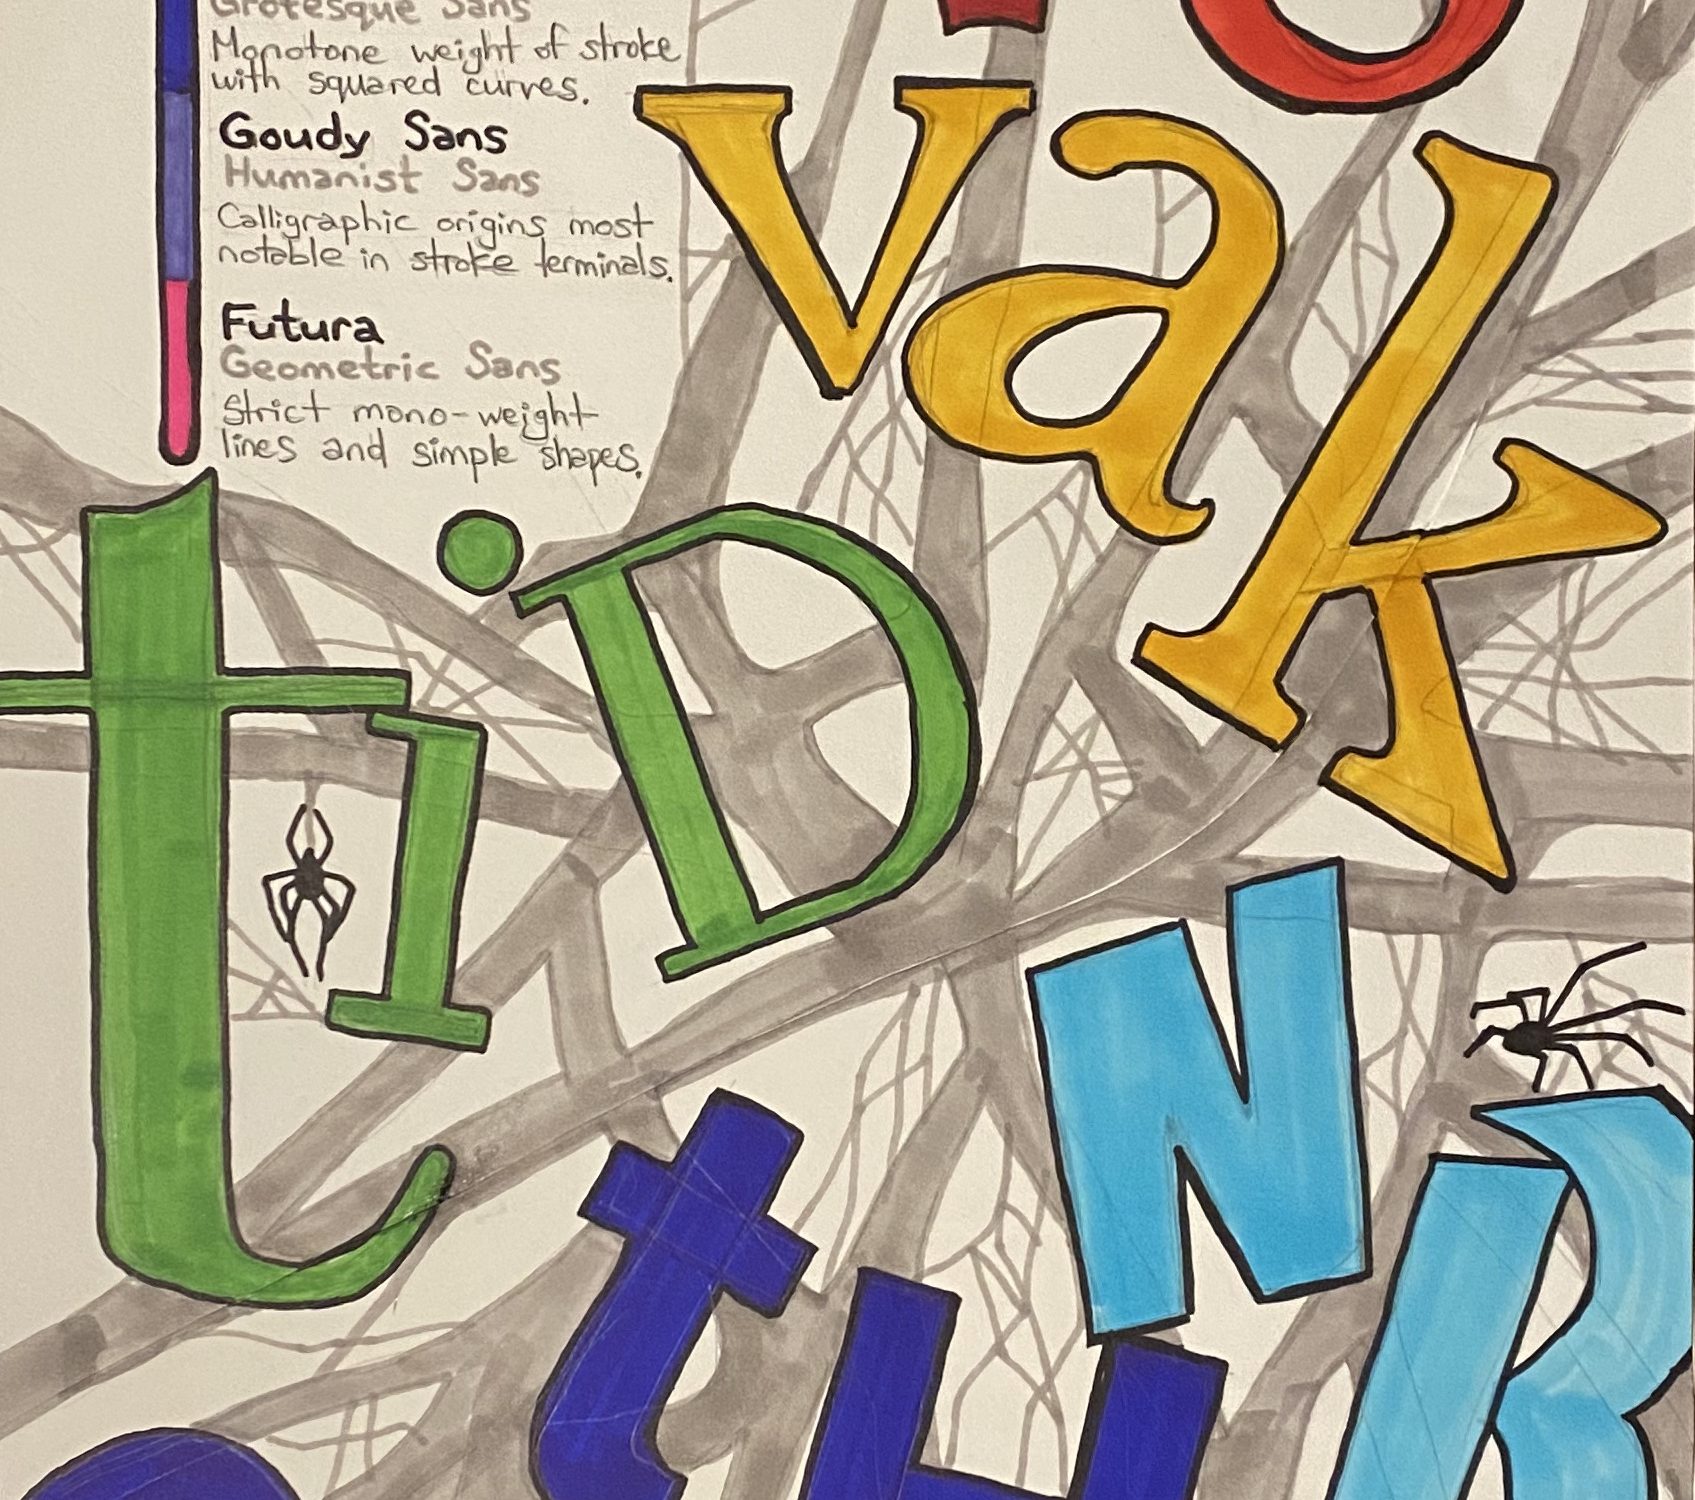 Grotesque Sans
Monotone weight of stroke
with squared curves.
Goudy Sans
Humanist Sans
Calligraphic origins most
notable in stroke terminals.
Futura
Geometric Sans
Strict mono-weight
lines and simple shapes.
v a k
t i D
N
R
t H